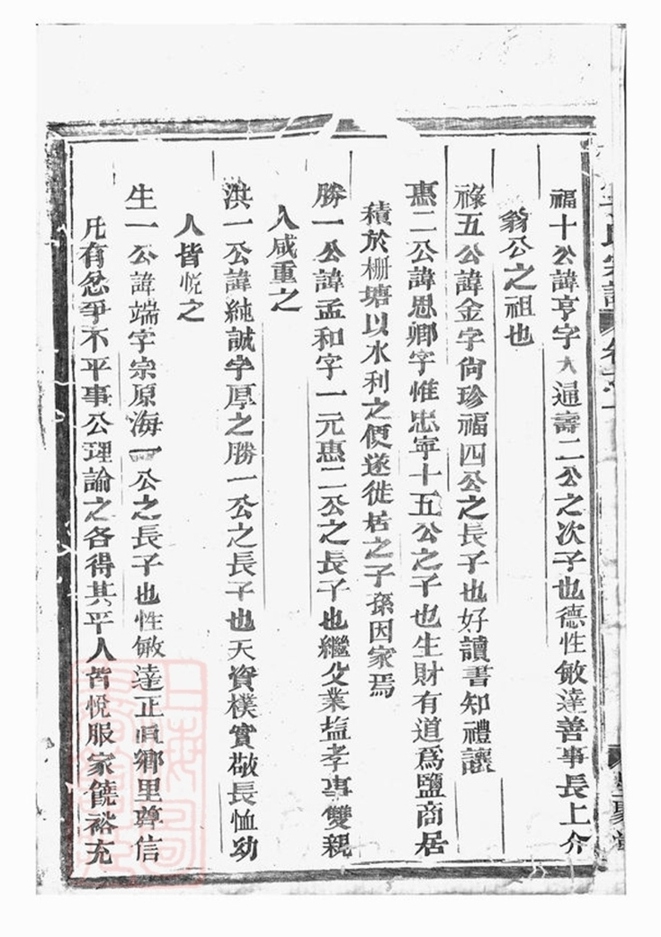 福十公諱亨字大通壽二公之次子也德性敏達善事長上介
翁公之祖也
祿五公諱金字尙珍福四公之長子也好讀書知禮讓
惠二公諱思卿字惟忠寧十五公之子也生財有道爲鹽商居
積於栅塘以水利之便遂徙居之子孫因家焉
勝一公諱孟和字一元惠二公之長子也繼父業塩孝事雙親
人咸重之
洪一公諱純誠字厚之勝一公之長子也天資樸實敬長恤幼
人皆悅之
生一公諱端字宗原海一公之長子也性敏達正直鄉里尊信
凡有忿爭不平事公理論之各得其平人皆悅服家饒裕充
氏宗譜
聚